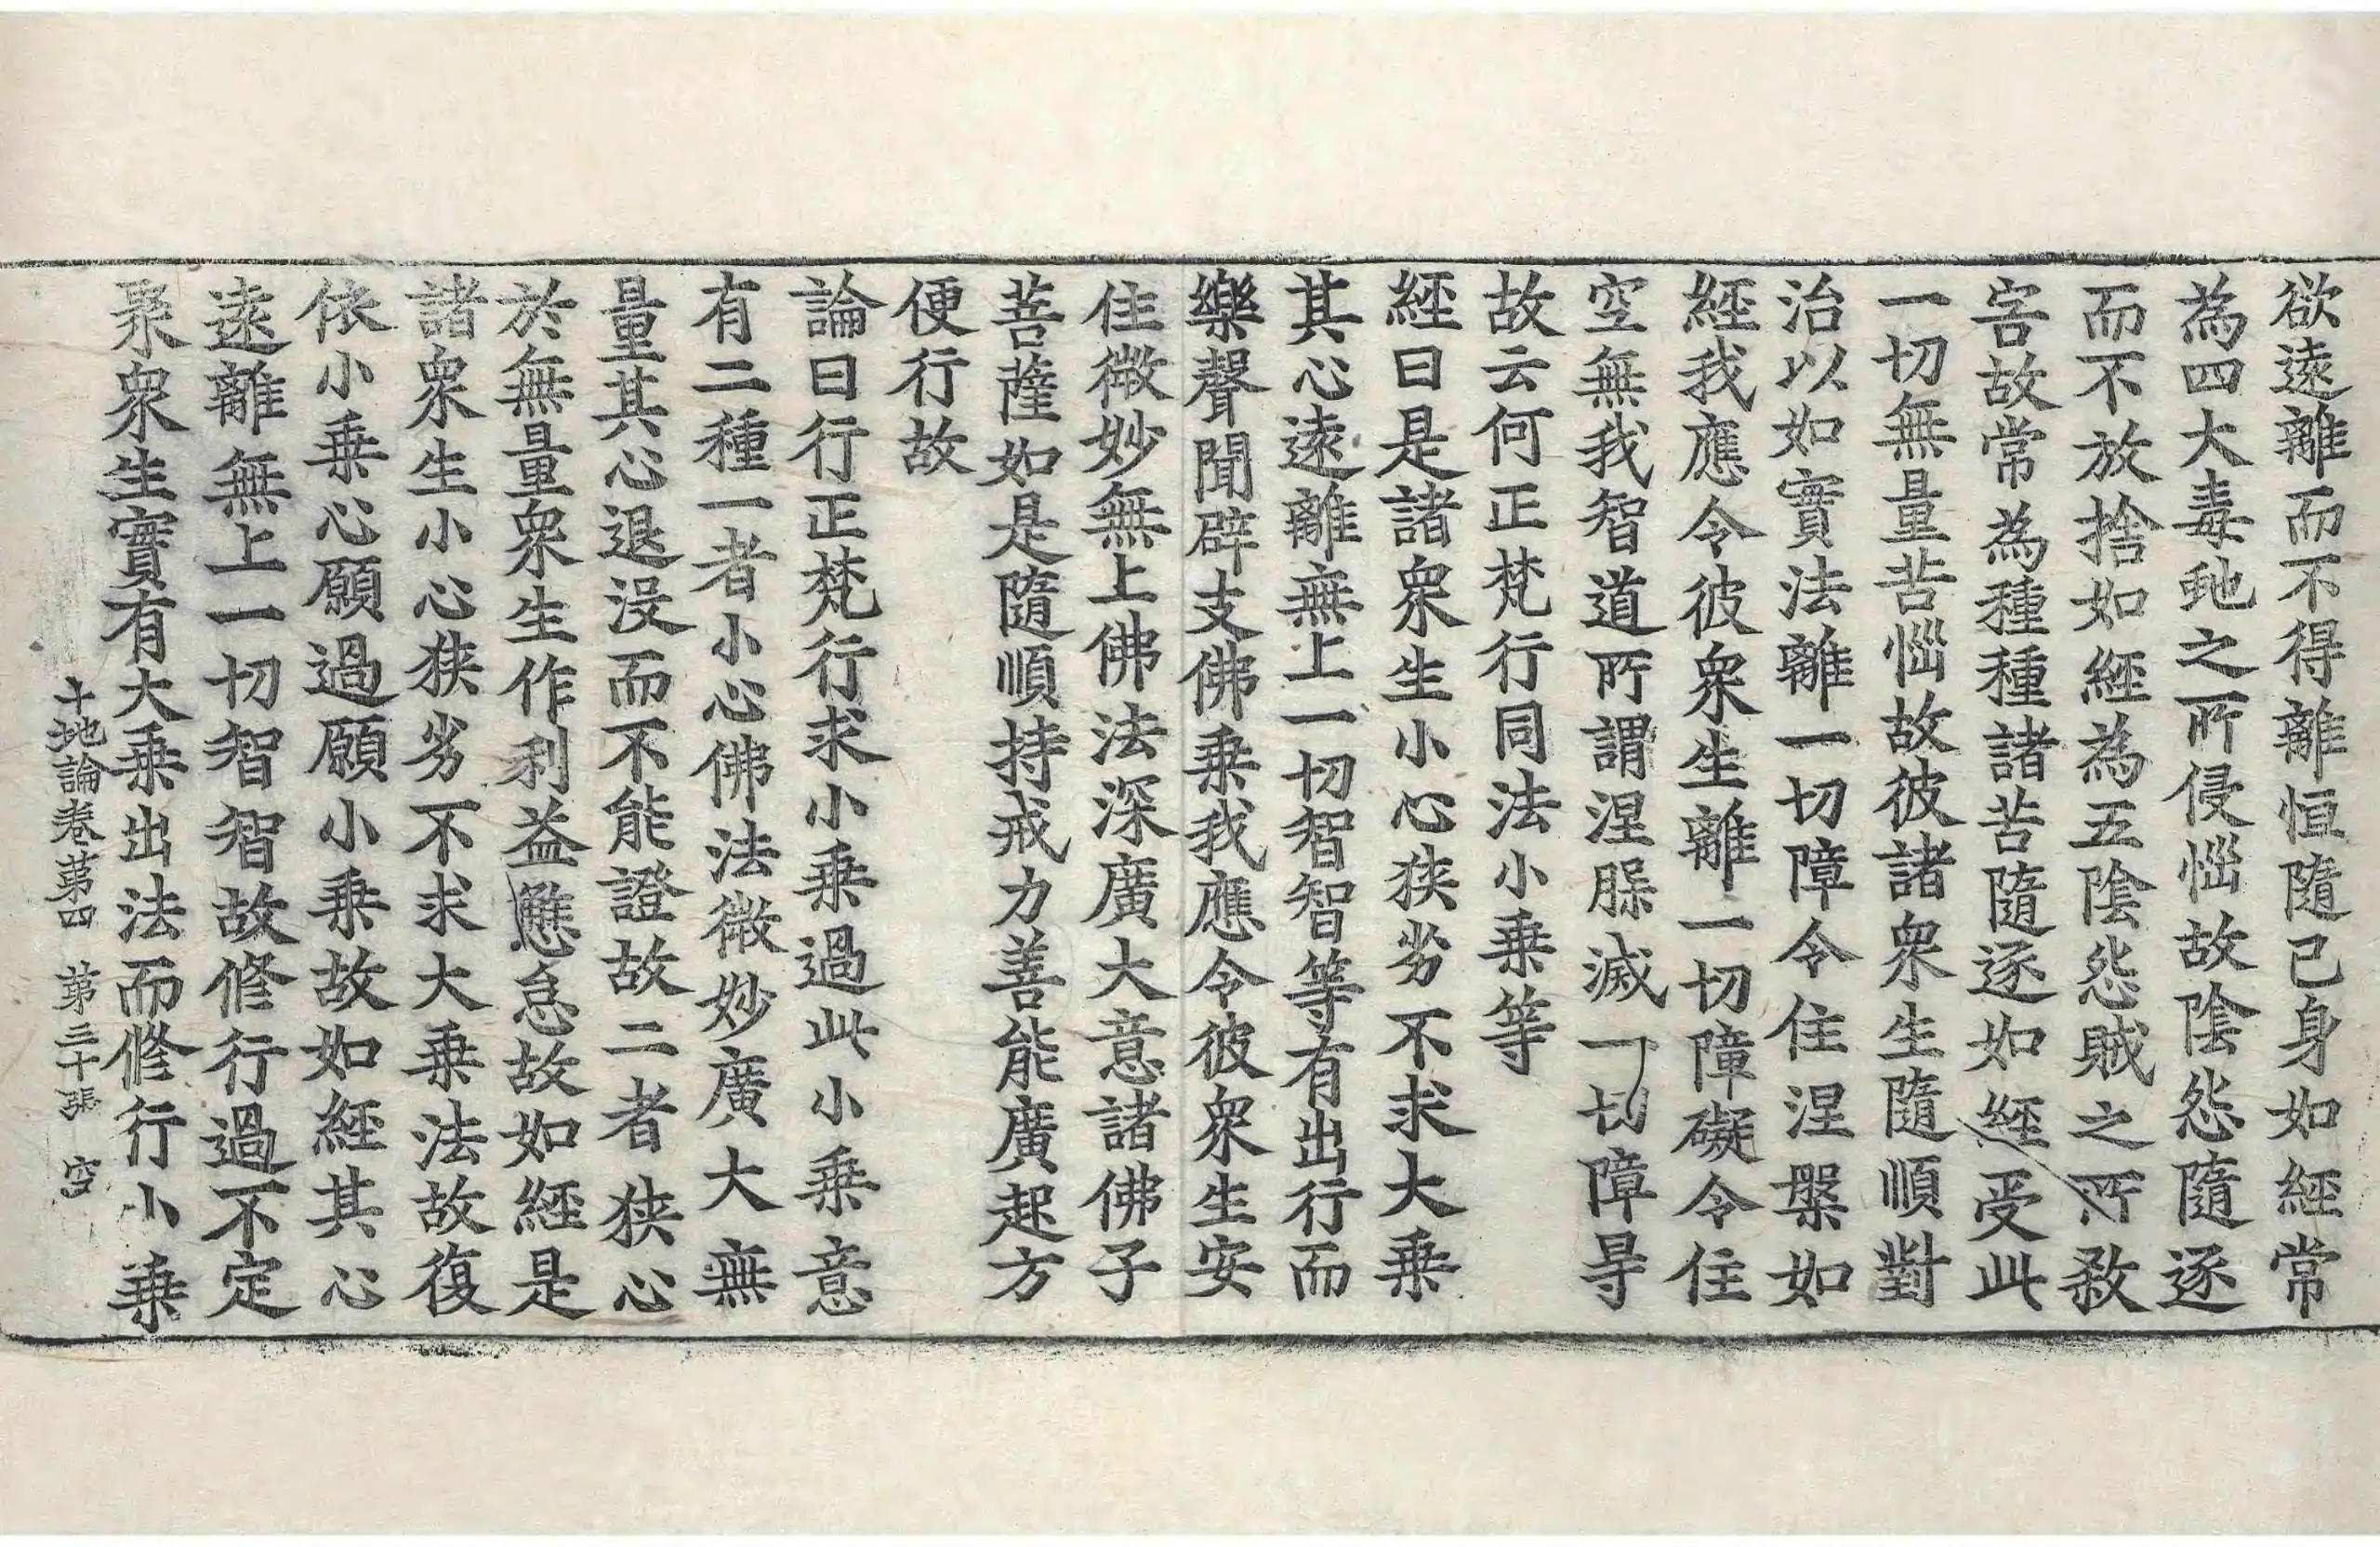 欲遠離而不得離恒隨己身如經常
為四大毒虵之所侵惱故陰怨隨逐
而不放捨如經為五陰怨賊之所殺
害故常為種種諸苦隨逐如經受此
一切無量苦惱故彼諸衆生隨順對
治以如實法離一切障令住涅槃如
經我應令彼衆生離一切障礙令住
空無我智道所謂涅槃滅一切障㝵
故云何正梵行同法小乗等
經曰是諸衆生小心狹劣不求大乗
其心遠離無上一切智智等有出行而
樂聲聞辟支佛乗我應令彼衆生安
住微妙無上佛法深廣大意諸佛子
菩薩如是隨順持戒力善能廣起方
便行故
論曰行正梵行求小乗過此小乗意
有二種一者小心佛法微妙廣大無
量其心退没而不能證故二者狹心
於無量衆生作利益懈怠故如經是
諸衆生小心狹劣不求大乗法故復
依小乗心願過願小乗故如經其心
遠離無上一切智智故修行過不定
聚衆生實有大乗出法而修行小乗
十地論卷第四　第三十張　空